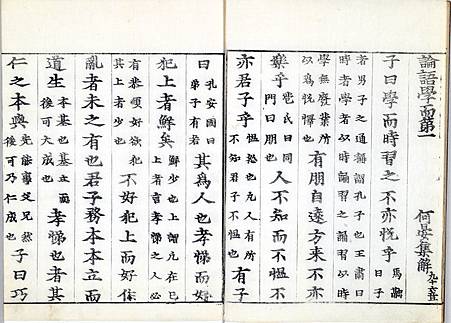 論語學而第一　何晏集解 凡十六章
子曰學而時習之不亦悅乎 馬融曰子
者男子之通稱謂孔子也王肅曰時者學者以時誦習之誦習以時
學無廢業所以為悅懌 有朋自遠方來不亦
樂乎 苞氏曰同門曰朋 人不知而不慍不
亦君子乎 慍怒也凡人有所不知君子不慍 有子
曰 孔安國曰弟子有若 其為人也孝悌而好
犯上者鮮矣 鮮少也上謂凡在己上者言孝悌之人
有恭順好欲犯其上者少也 不好犯上而好作
亂者未之有也君子務本本立而
道生 本基也基立而後可大成也 孝悌也者其
仁之本與 先能事父兄然後可乃仁成也 子曰巧